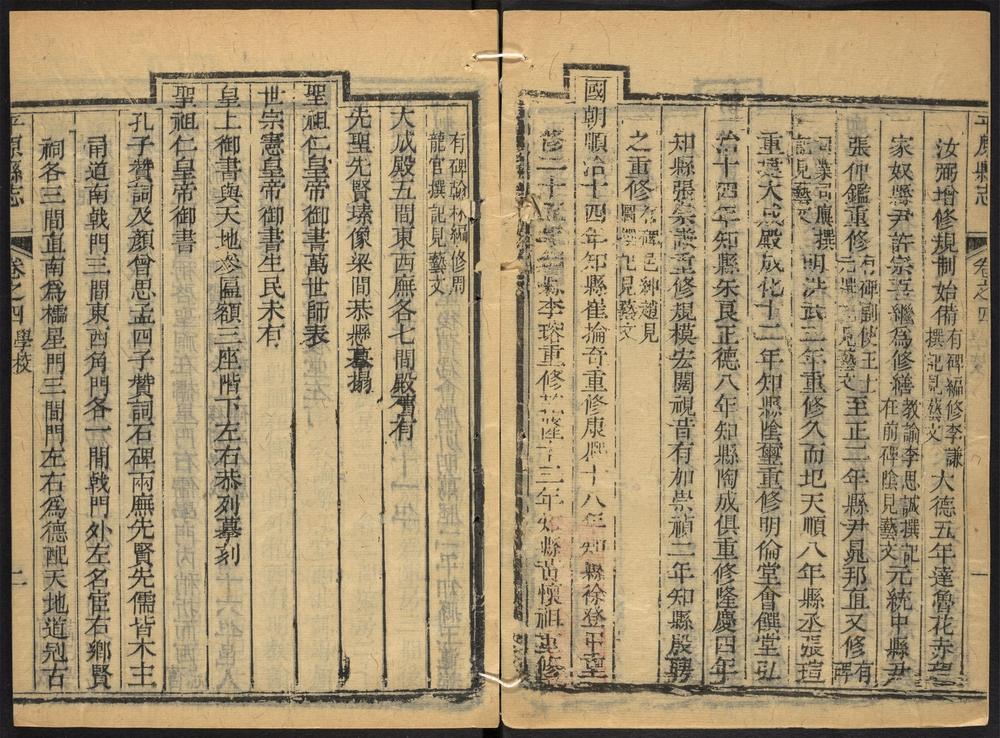 平原縣志
卷之四
一
汝弼增修規制始備有碑編修李謙撰記見藝文大德五年達魯花赤
家奴縣尹許宗吾繼為修繕教諭李思誠撰記在前碑陰見藝文元統中縣尹
張仲鑑重修有碑副使王士元撰記見藝文至正二年縣尹晁邦直又修有碑
司業司廩撰記見藝文明洪武二年重修久而圮天順八年縣丞張瑄
重建大成殿成化十二年知縣陰璽重修明倫堂會饌堂弘
治十四年知縣朱良正德八年知縣陶成俱重修隆慶四年
知縣張崇重修規模宏闊視昔有加崇禎二年知縣殷騁
之重修有碑邑鄉趙見圖撰記見藝文
國朝順治十四年知縣崔掄奇重修康熙十八年知縣徐登甲重
修二十李瑢重修乾隆十三年知縣黃懷祖重修
有碑翰林編修周龍官撰記見藝文
大成殿五間東西廡各七間殿有
先聖先賢塐像梁間恭懸摹搨
聖祖仁皇帝御書萬世師表
世宗憲皇帝御書生民未有
皇上御書與天地參匾額三座階下左右恭列摹刻
聖祖仁皇帝御書
孔子贊詞及顏曾思孟四子贊詞石碑兩廡先賢先儒皆木主
甬道南戟門三間東西角門各一間戟門外左名宦右鄉賢
祠各三間直南為櫺星門三間門左右為德配天地道冠古
平原縣志
卷之四
學校
二